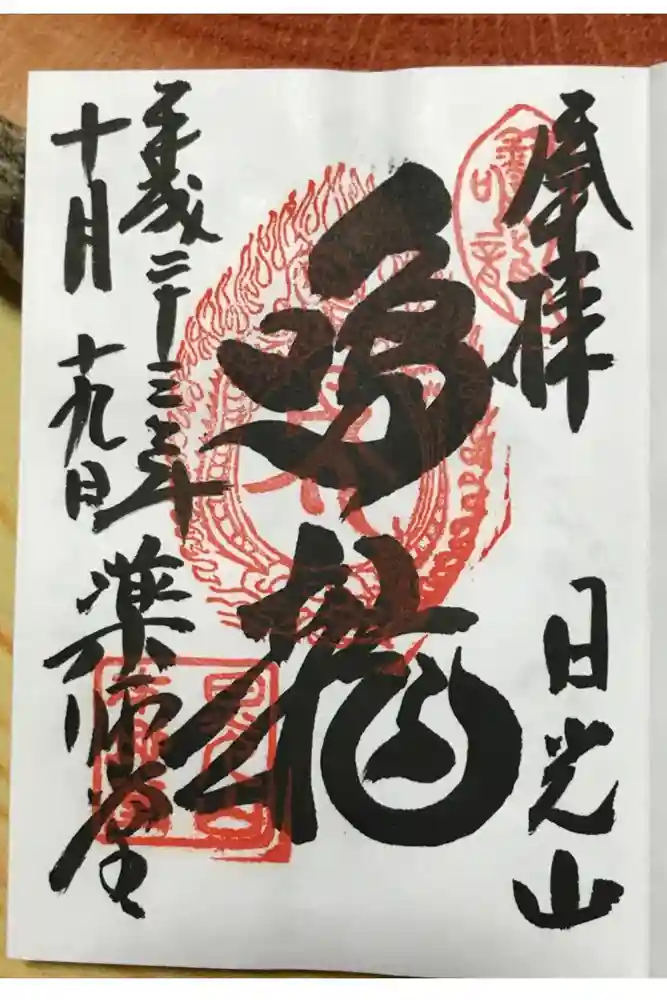 奉拝 日光山
鳴龍
平成二十三年
十月十九日 薬師堂